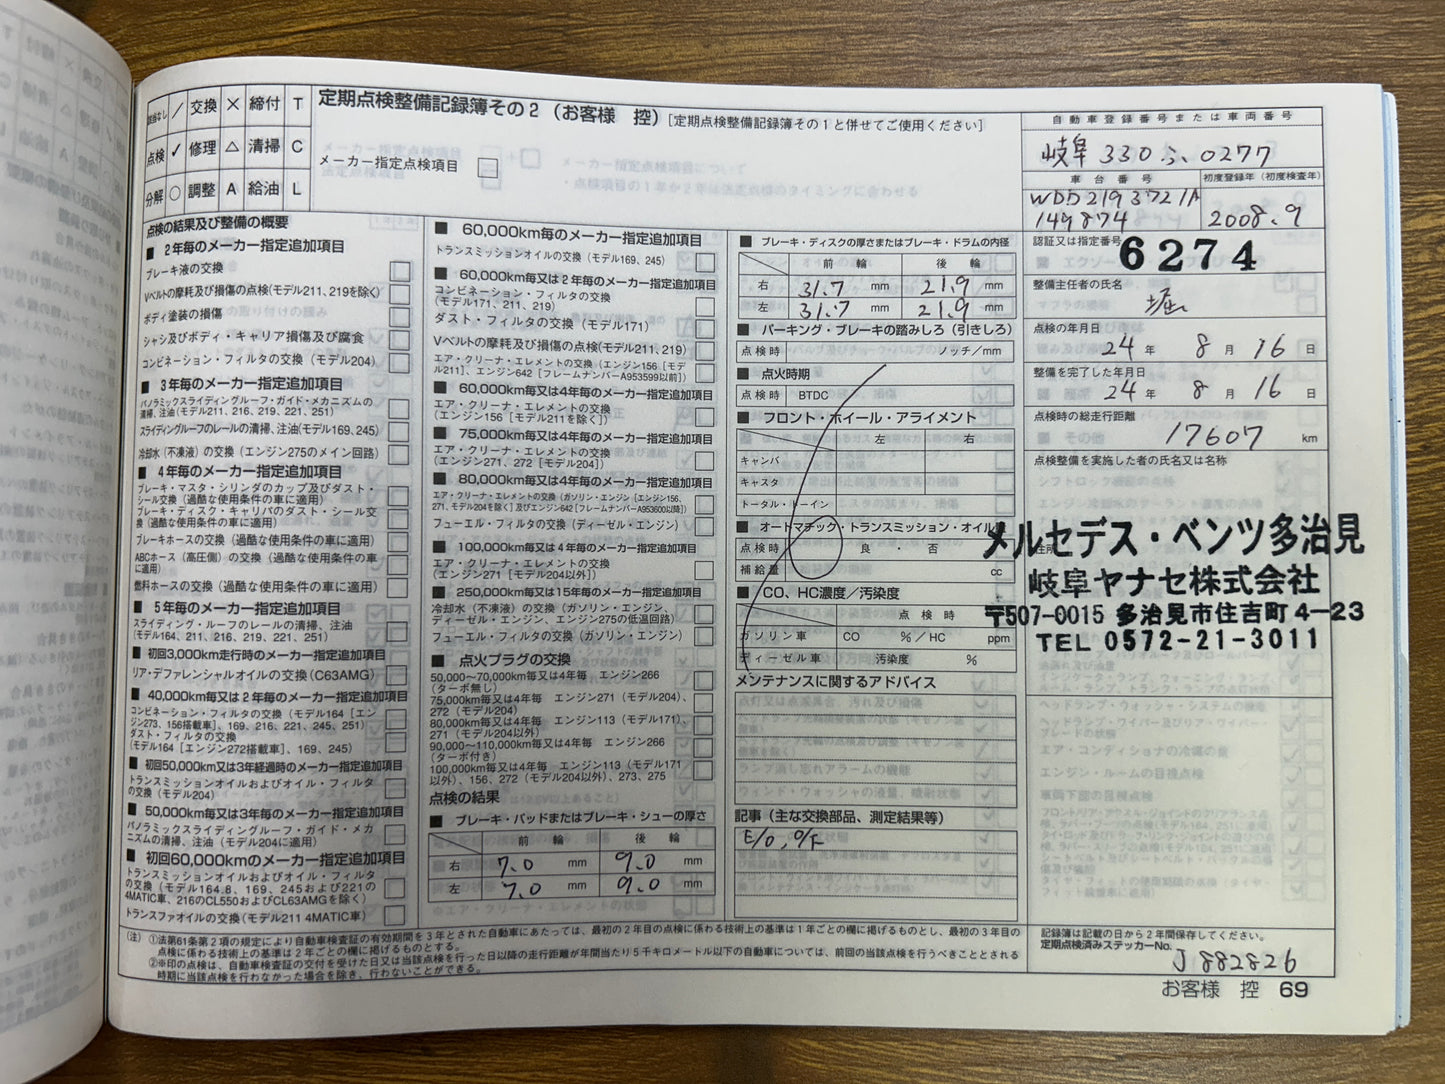 該当なし / 交換 × 締付 T
点検 ✓ 修理 △ 清掃 C
分解 ○ 調整 A 給油 L
定期点検整備記録簿その2（お客様 控）［定期点検整備記録簿その1と併せてご使用ください］
メーカー指定点検項目 □
自動車登録番号または車両番号
岐阜 330 ふ 0277
車台番号
WDD2193721A
149874
初度登録年（初度検査年）
2008.9
認証又は指定番号
6274
整備主任者の氏名
堀
点検の年月日
24 年 8 月 16 日
整備を完了した年月日
24 年 8 月 16 日
点検時の総走行距離
17607 km
点検整備を実施した者の氏名又は名称
住所
メルセデス・ベンツ多治見
岐阜ヤナセ株式会社
〒507-0015 多治見市住吉町4-23
TEL 0572-21-3011
点検の結果及び整備の概要
■ 2年毎のメーカー指定追加項目
ブレーキ液の交換
Vベルトの摩耗及び損傷の点検(モデル211、219を除く)
ボディ塗装の損傷
シャシ及びボディ・キャリア損傷及び腐食
コンビネーション・フィルタの交換（モデル204）
■ 3年毎のメーカー指定追加項目
パノラミックスライディングルーフ・ガイド・メカニズムの
清掃、注油(モデル211、216、219、221、251)
スライディングルーフのレールの清掃、注油(モデル169、245)
冷却水（不凍液）の交換（エンジン275のメイン回路）
■ 4年毎のメーカー指定追加項目
ブレーキ・マスタ・シリンダのカップ及びダスト・
シール交換（過酷な使用条件の車に適用）
ブレーキ・ディスク・キャリパのダスト・シール交
換（過酷な使用条件の車に適用）
ブレーキホースの交換（過酷な使用条件の車に適用）
ABCホース（高圧側）の交換（過酷な使用条件の車
に適用）
燃料ホースの交換（過酷な使用条件の車に適用）
■ 5年毎のメーカー指定追加項目
スライディング・ルーフのレールの清掃、注油
(モデル164、211、216、219、221、251)
■ 初回3,000km走行時のメーカー指定追加項目
リア・デファレンシャルオイルの交換（C63AMG）
■ 40,000km毎又は2年毎のメーカー指定追加項目
コンビネーション・フィルタの交換（モデル164［エン
ジン273、156搭載車］、169、216、221、245、251）
ダスト・フィルタの交換
（モデル164［エンジン272搭載車］、169、245）
■ 初回50,000km又は3年経過時のメーカー指定追加項目
トランスミッションオイルおよびオイル・フィルタ
の交換（モデル204）
■ 50,000km毎又は3年毎のメーカー指定追加項目
パノラミックスライディングルーフ・ガイド・メカ
ニズムの清掃、注油（モデル204に適用）
■ 初回60,000kmのメーカー指定追加項目
トランスミッションオイルおよびオイル・フィルタ
の交換（モデル164.8、169、245および221の
4MATIC車、216のCL550およびCL63AMGを除く）
トランスファオイルの交換（モデル211 4MATIC車）
■ 60,000km毎のメーカー指定追加項目
トランスミッションオイルの交換（モデル169、245）
■ 60,000km毎又は2年毎のメーカー指定追加項目
コンビネーション・フィルタの交換
（モデル171、211、219）
ダスト・フィルタの交換（モデル171）
Vベルトの摩耗及び損傷の点検(モデル211、219)
エア・クリーナ・エレメントの交換（エンジン156［モデ
ル211］、エンジン642［フレームナンバーA953599以前］）
■ 60,000km毎又は4年毎のメーカー指定追加項目
エア・クリーナ・エレメントの交換
（エンジン156［モデル211を除く］）
■ 75,000km毎又は4年毎のメーカー指定追加項目
エア・クリーナ・エレメントの交換
（エンジン271、272［モデル204］）
■ 80,000km毎又は4年毎のメーカー指定追加項目
エア・クリーナ・エレメントの交換（ガソリン・エンジン［エンジン156、
271、モデル204を除く］及びエンジン642［フレームナンバーA953600以降］）
フューエル・フィルタの交換（ディーゼル・エンジン）
■ 100,000km毎又は4年毎のメーカー指定追加項目
エア・クリーナ・エレメントの交換
（エンジン271［モデル204以外］）
■ 250,000km毎又は15年毎のメーカー指定追加項目
冷却水（不凍液）の交換（ガソリン・エンジン、
ディーゼル・エンジン、エンジン275の低温回路）
フューエル・フィルタの交換（ガソリン・エンジン）
■ 点火プラグの交換
50,000〜70,000km毎又は4年毎 エンジン266
（ターボ無し）
75,000km毎又は4年毎 エンジン271（モデル204）、
272（モデル204）
80,000km毎又は4年毎 エンジン113（モデル171）、
271（モデル204以外）
90,000〜110,000km毎又は4年毎 エンジン266
（ターボ付き）
100,000km毎又は4年毎 エンジン113（モデル171
以外）、156、272（モデル204以外）、273、275
点検の結果
■ ブレーキ・パッドまたはブレーキ・シューの厚さ
前輪 後輪
右 7.0 mm 9.0 mm
左 7.0 mm 9.0 mm
■ ブレーキ・ディスクの厚さまたはブレーキ・ドラムの内径
前輪 後輪
右 31.7 mm 21.9 mm
左 31.7 mm 21.9 mm
■ パーキング・ブレーキの踏みしろ（引きしろ）
点検時 ノッチ/mm
■ 点火時期
点検時 BTDC
■ フロント・ホイール・アライメント
左 右
キャンバ
キャスタ
トータル・トーイン
■ オートマチック・トランスミッション・オイル量
点検時 良 ・ 否
補給量 cc
■ CO、HC濃度／汚染度
点検時
ガソリン車 CO %／HC ppm
ディーゼル車 汚染度 %
メンテナンスに関するアドバイス
記事（主な交換部品、測定結果等）
E/O, O/F
（注）①法第61条第2項の規定により自動車検査証の有効期間を3年とされた自動車にあたっては、最初の2年目の点検に係わる技術上の基準は1年ごとの欄に掲げるものとし、最初の3年目の
点検に係わる技術上の基準は2年ごとの欄に掲げるものとする。
②※印の点検は、自動車検査証の交付を受けた日又は当該点検を行った日以降の走行距離が年間当たり5千キロメートル以下の自動車については、前回の当該点検を行うべきこととされる
時期に当該点検を行わなかった場合を除き、行わないことができる。
記録簿は記載の日から2年間保存してください。
定期点検済みステッカーNo.
J882826
お客様 控 69